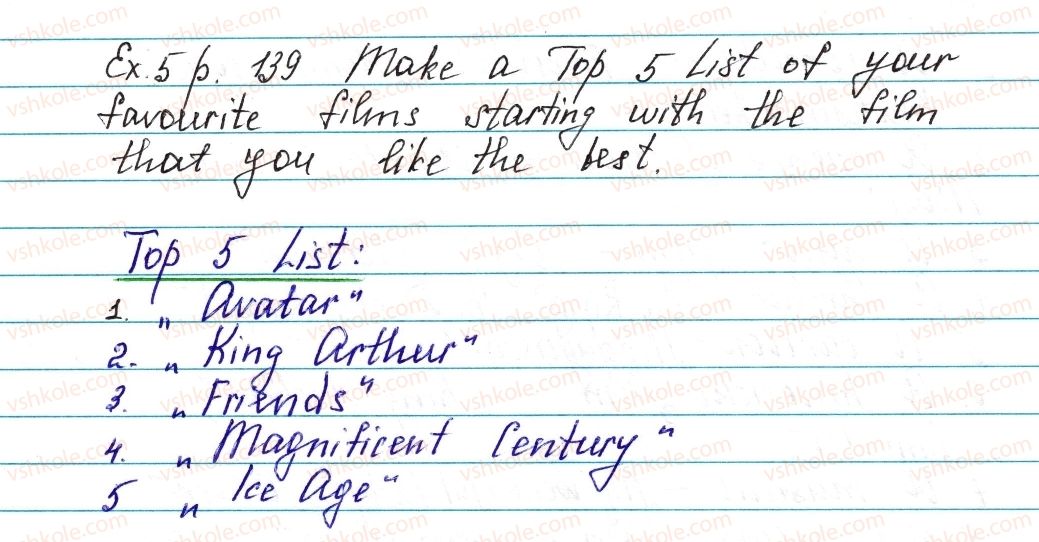 Ex. 5 p. 139 Make a Top 5 List of your
favourite films starting with the film
that you like the best.
Top 5 List:
1. „Avatar"
2. „King Arthur"
3. „Friends"
4. „Magnificent Century"
5 „Ice Age"